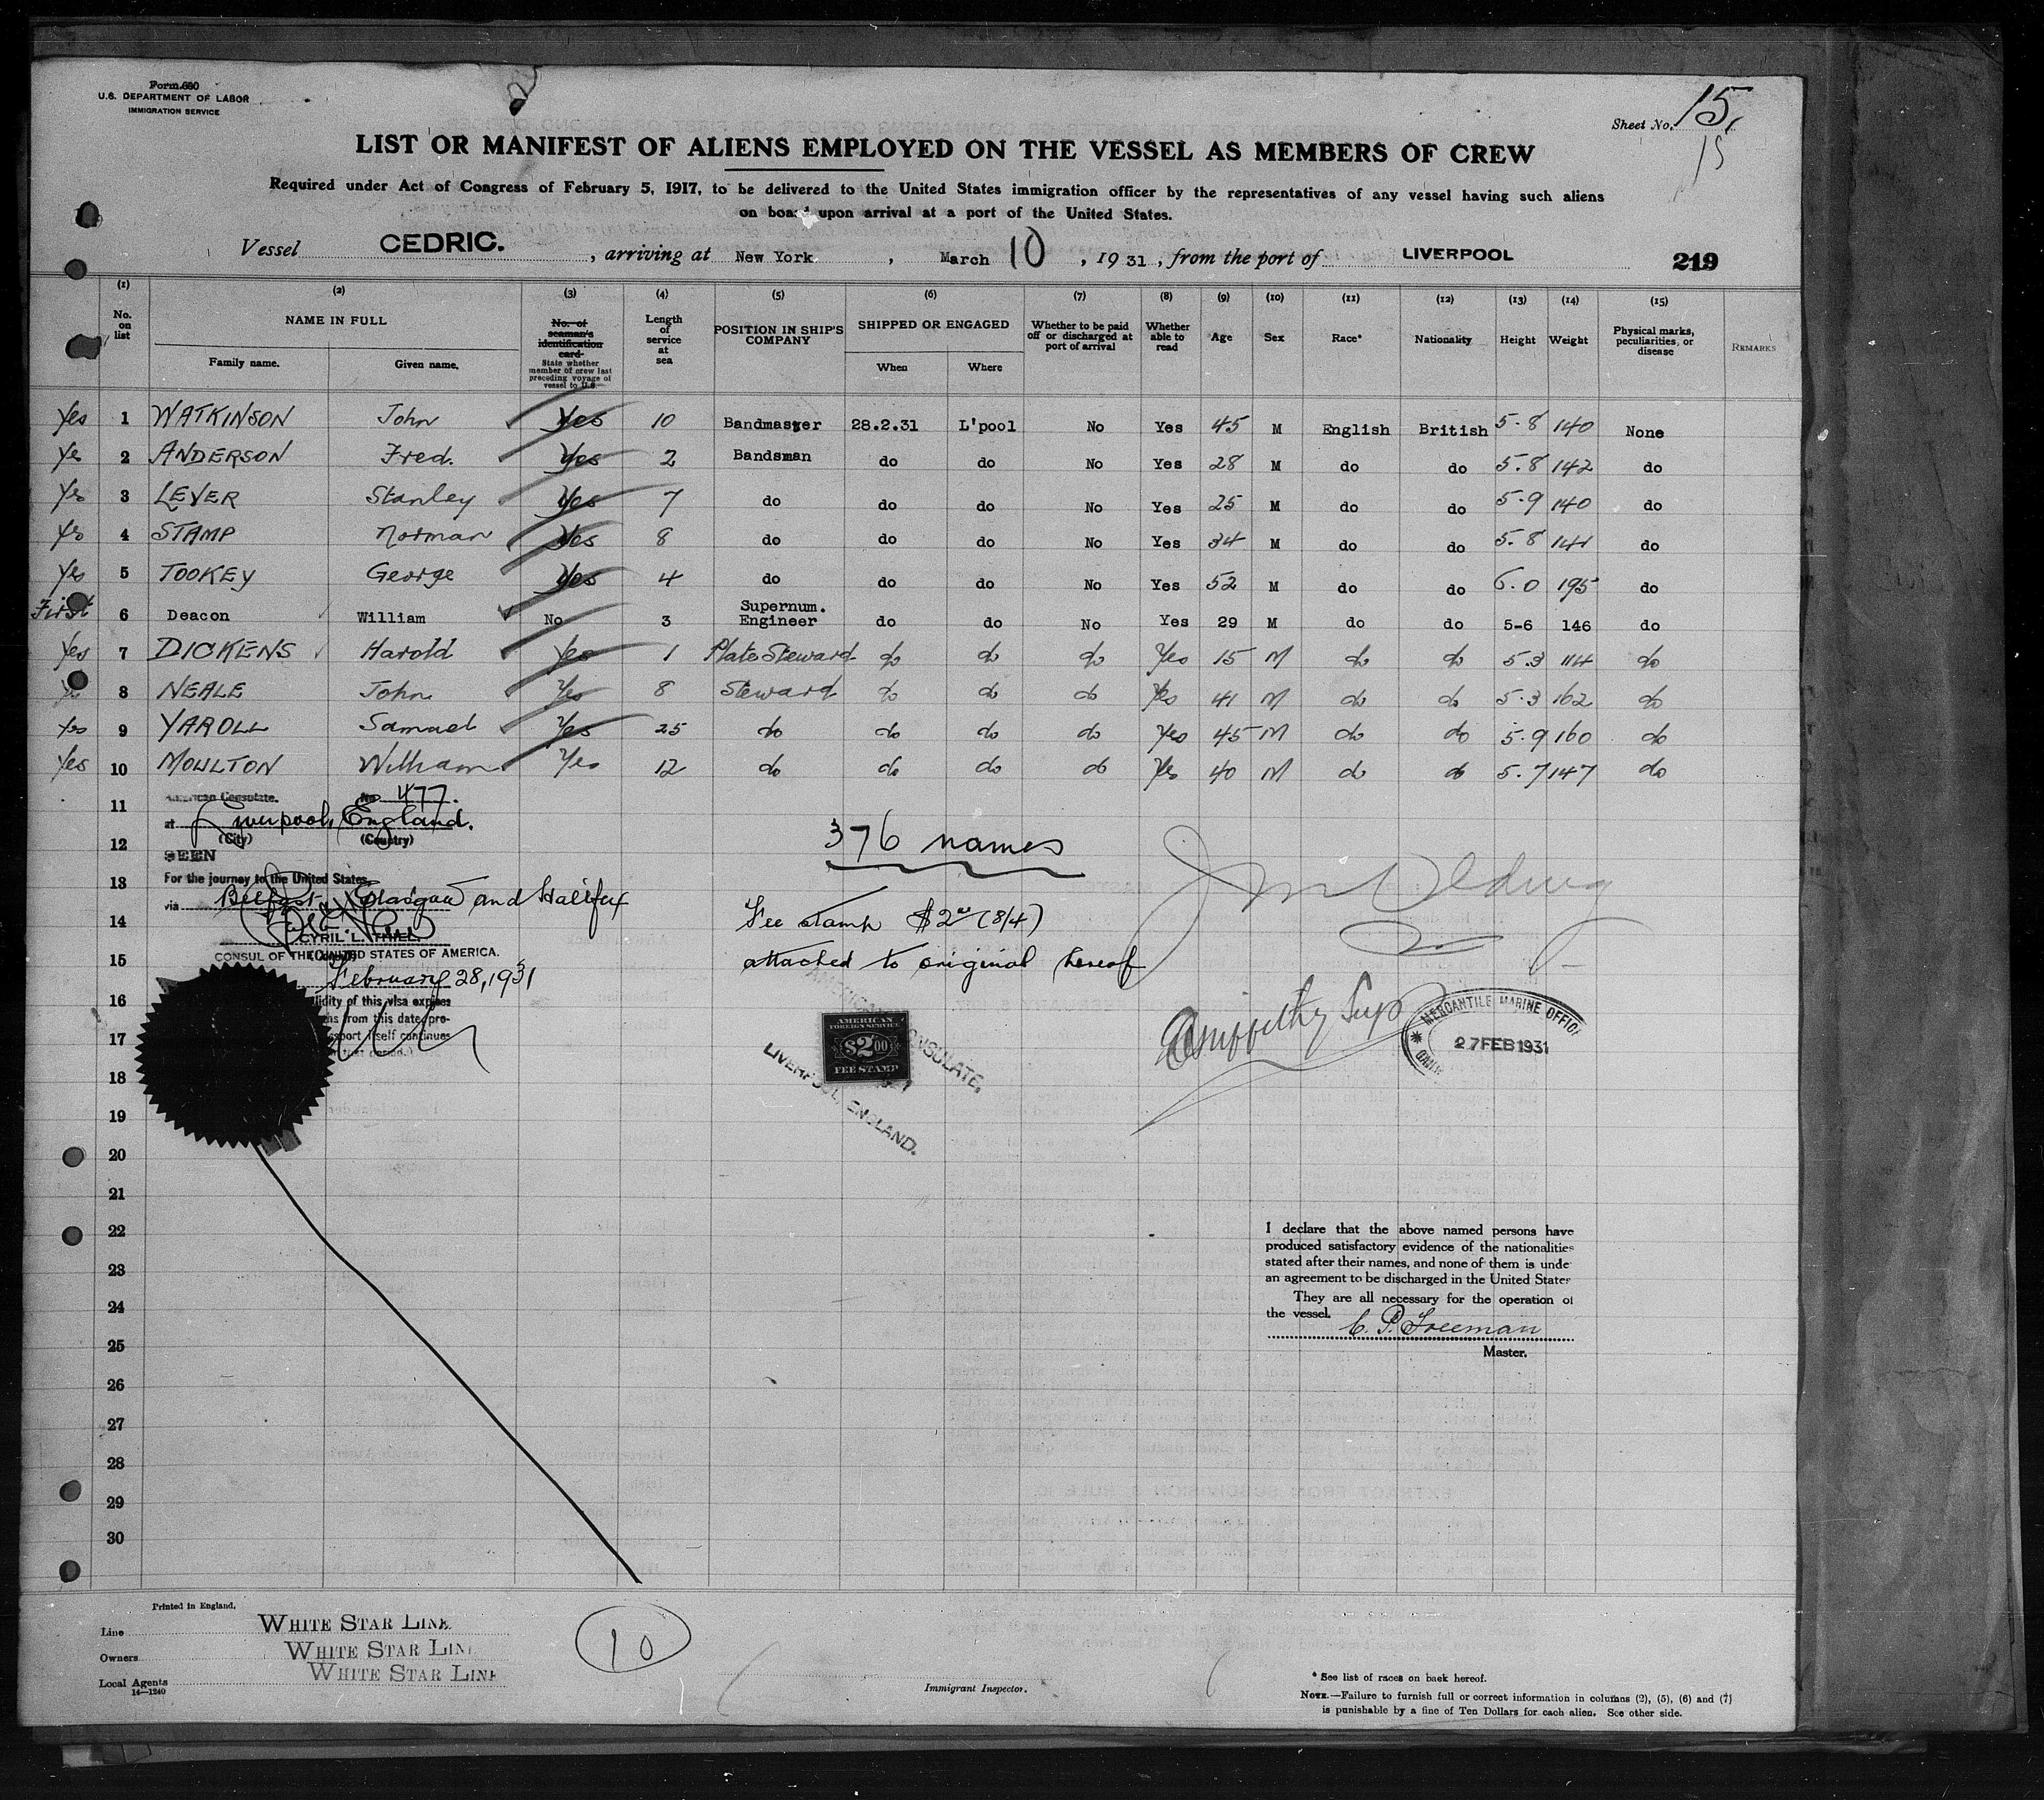 Form 680
U.S. DEPARTMENT OF LABOR
IMMIGRATION SERVICE
Sheet No. 15,
15
LIST OR MANIFEST OF ALIENS EMPLOYED ON THE VESSEL AS MEMBERS OF CREW
Required under Act of Congress of February 5, 1917, to be delivered to the United States immigration officer by the representatives of any vessel having such aliens
on board upon arrival at a port of the United States.
Vessel CEDRIC. , arriving at New York , March 10 , 1931 , from the port of LIVERPOOL 219
(1) (2) (3) (4) (5) (6) (7) (8) (9) (10) (11) (12) (13) (14) (15)
No. on list NAME IN FULL Family name. Given name. No. of seaman's identification card State whether member of crew last preceding voyage of vessel to U.S. Length of service at sea POSITION IN SHIP'S COMPANY SHIPPED OR ENGAGED When Where Whether to be paid off or discharged at port of arrival Whether able to read Age Sex Race* Nationality Height Weight Physical marks, peculiarities, or disease REMARKS
Yes 1 WATKINSON John Yes 10 Bandmaster 28.2.31 L'pool No Yes 45 M English British 5-8 140 None
Ye 2 ANDERSON Fred. Yes 2 Bandsman do do No Yes 28 M do do 5.8 142 do
Yes 3 LEVER Stanley Yes 7 do do do No Yes 25 M do do 5.9 140 do
Yes 4 STAMP Norman Yes 8 do do do No Yes 34 M do do 5.8 141 do
Yes 5 TOOKEY George Yes 4 do do do No Yes 52 M do do 6.0 195 do
First 6 Deacon William No 3 Supernum. Engineer do do No Yes 29 M do do 5-6 146 do
Yes 7 DICKENS Harold Yes 1 Plate Steward do do do Yes 15 M do do 5.3 114 do
8 NEALE John Yes 8 Steward do do do Yes 41 M do do 5.3 162 do
Yes 9 YAROLL Samuel Yes 25 do do do do Yes 45 M do do 5.9 160 do
Yes 10 MOULTON William Yes 12 do do do do Yes 40 M do do 5.7 147 do
11
12
13
14
15
16
17
18
19
20
21
22
23
24
25
26
27
28
29
30
American Consulate. No 477.
at Liverpool, England.
(City) (Country)
SEEN
For the journey to the United States
via Belfast, Glasgow and Halifax
CYRIL L. THIEL
CONSUL OF THE UNITED STATES OF AMERICA.
February 28, 1931
validity of this visa expires
from this date, pro-
passport itself continues
376 names
Fee stamp $2 00 (8/4)
attached to original hereof
AMERICAN CONSULATE,
LIVERPOOL, ENGLAND.
AMERICAN
FOREIGN SERVICE
$2.00
FEE STAMP
MERCANTILE MARINE OFFICE
27 FEB 1931
I declare that the above named persons have
produced satisfactory evidence of the nationalities
stated after their names, and none of them is under
an agreement to be discharged in the United States
They are all necessary for the operation of
the vessel.
C. P. Freeman
Master.
Printed in England.
Line WHITE STAR LINE
Owners WHITE STAR LINE
Local Agents WHITE STAR LINE
14—1240
10
Immigrant Inspector.
* See list of races on back hereof.
NOTE.—Failure to furnish full or correct information in columns (2), (5), (6) and (7)
is punishable by a fine of Ten Dollars for each alien. See other side.